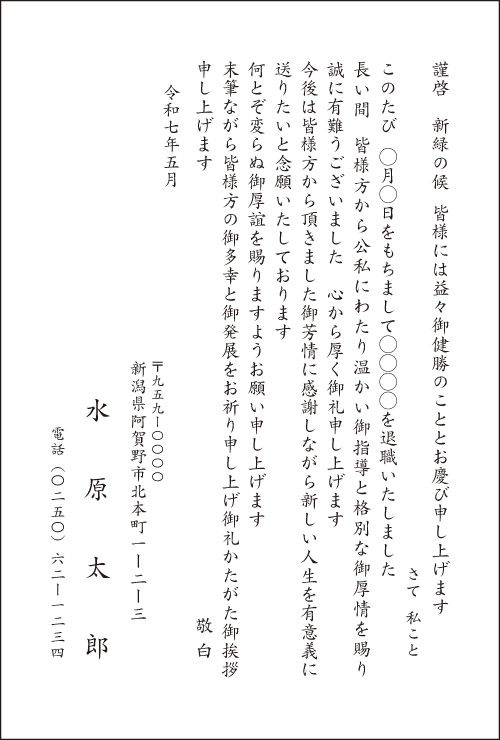 謹啓　新緑の候　皆様には益々御健勝のこととお慶び申し上げます
さて　私こと
このたび　〇月〇日をもちまして〇〇〇〇を退職いたしました
長い間　皆様方から公私にわたり温かい御指導と格別な御厚情を賜り
誠に有難うございました　心から厚く御礼申し上げます
今後は皆様方から頂きました御芳情に感謝しながら新しい人生を有意義に
送りたいと念願いたしております
何とぞ変らぬ御厚誼を賜りますようお願い申し上げます
末筆ながら皆様方の御多幸と御発展をお祈り申し上げ御礼かたがた御挨拶
申し上げます　敬白
令和七年五月
〒九五九ー〇〇〇〇
新潟県阿賀野市北本町一ー二ー三
水原太郎
電話（〇二五〇）六二ー一二三四